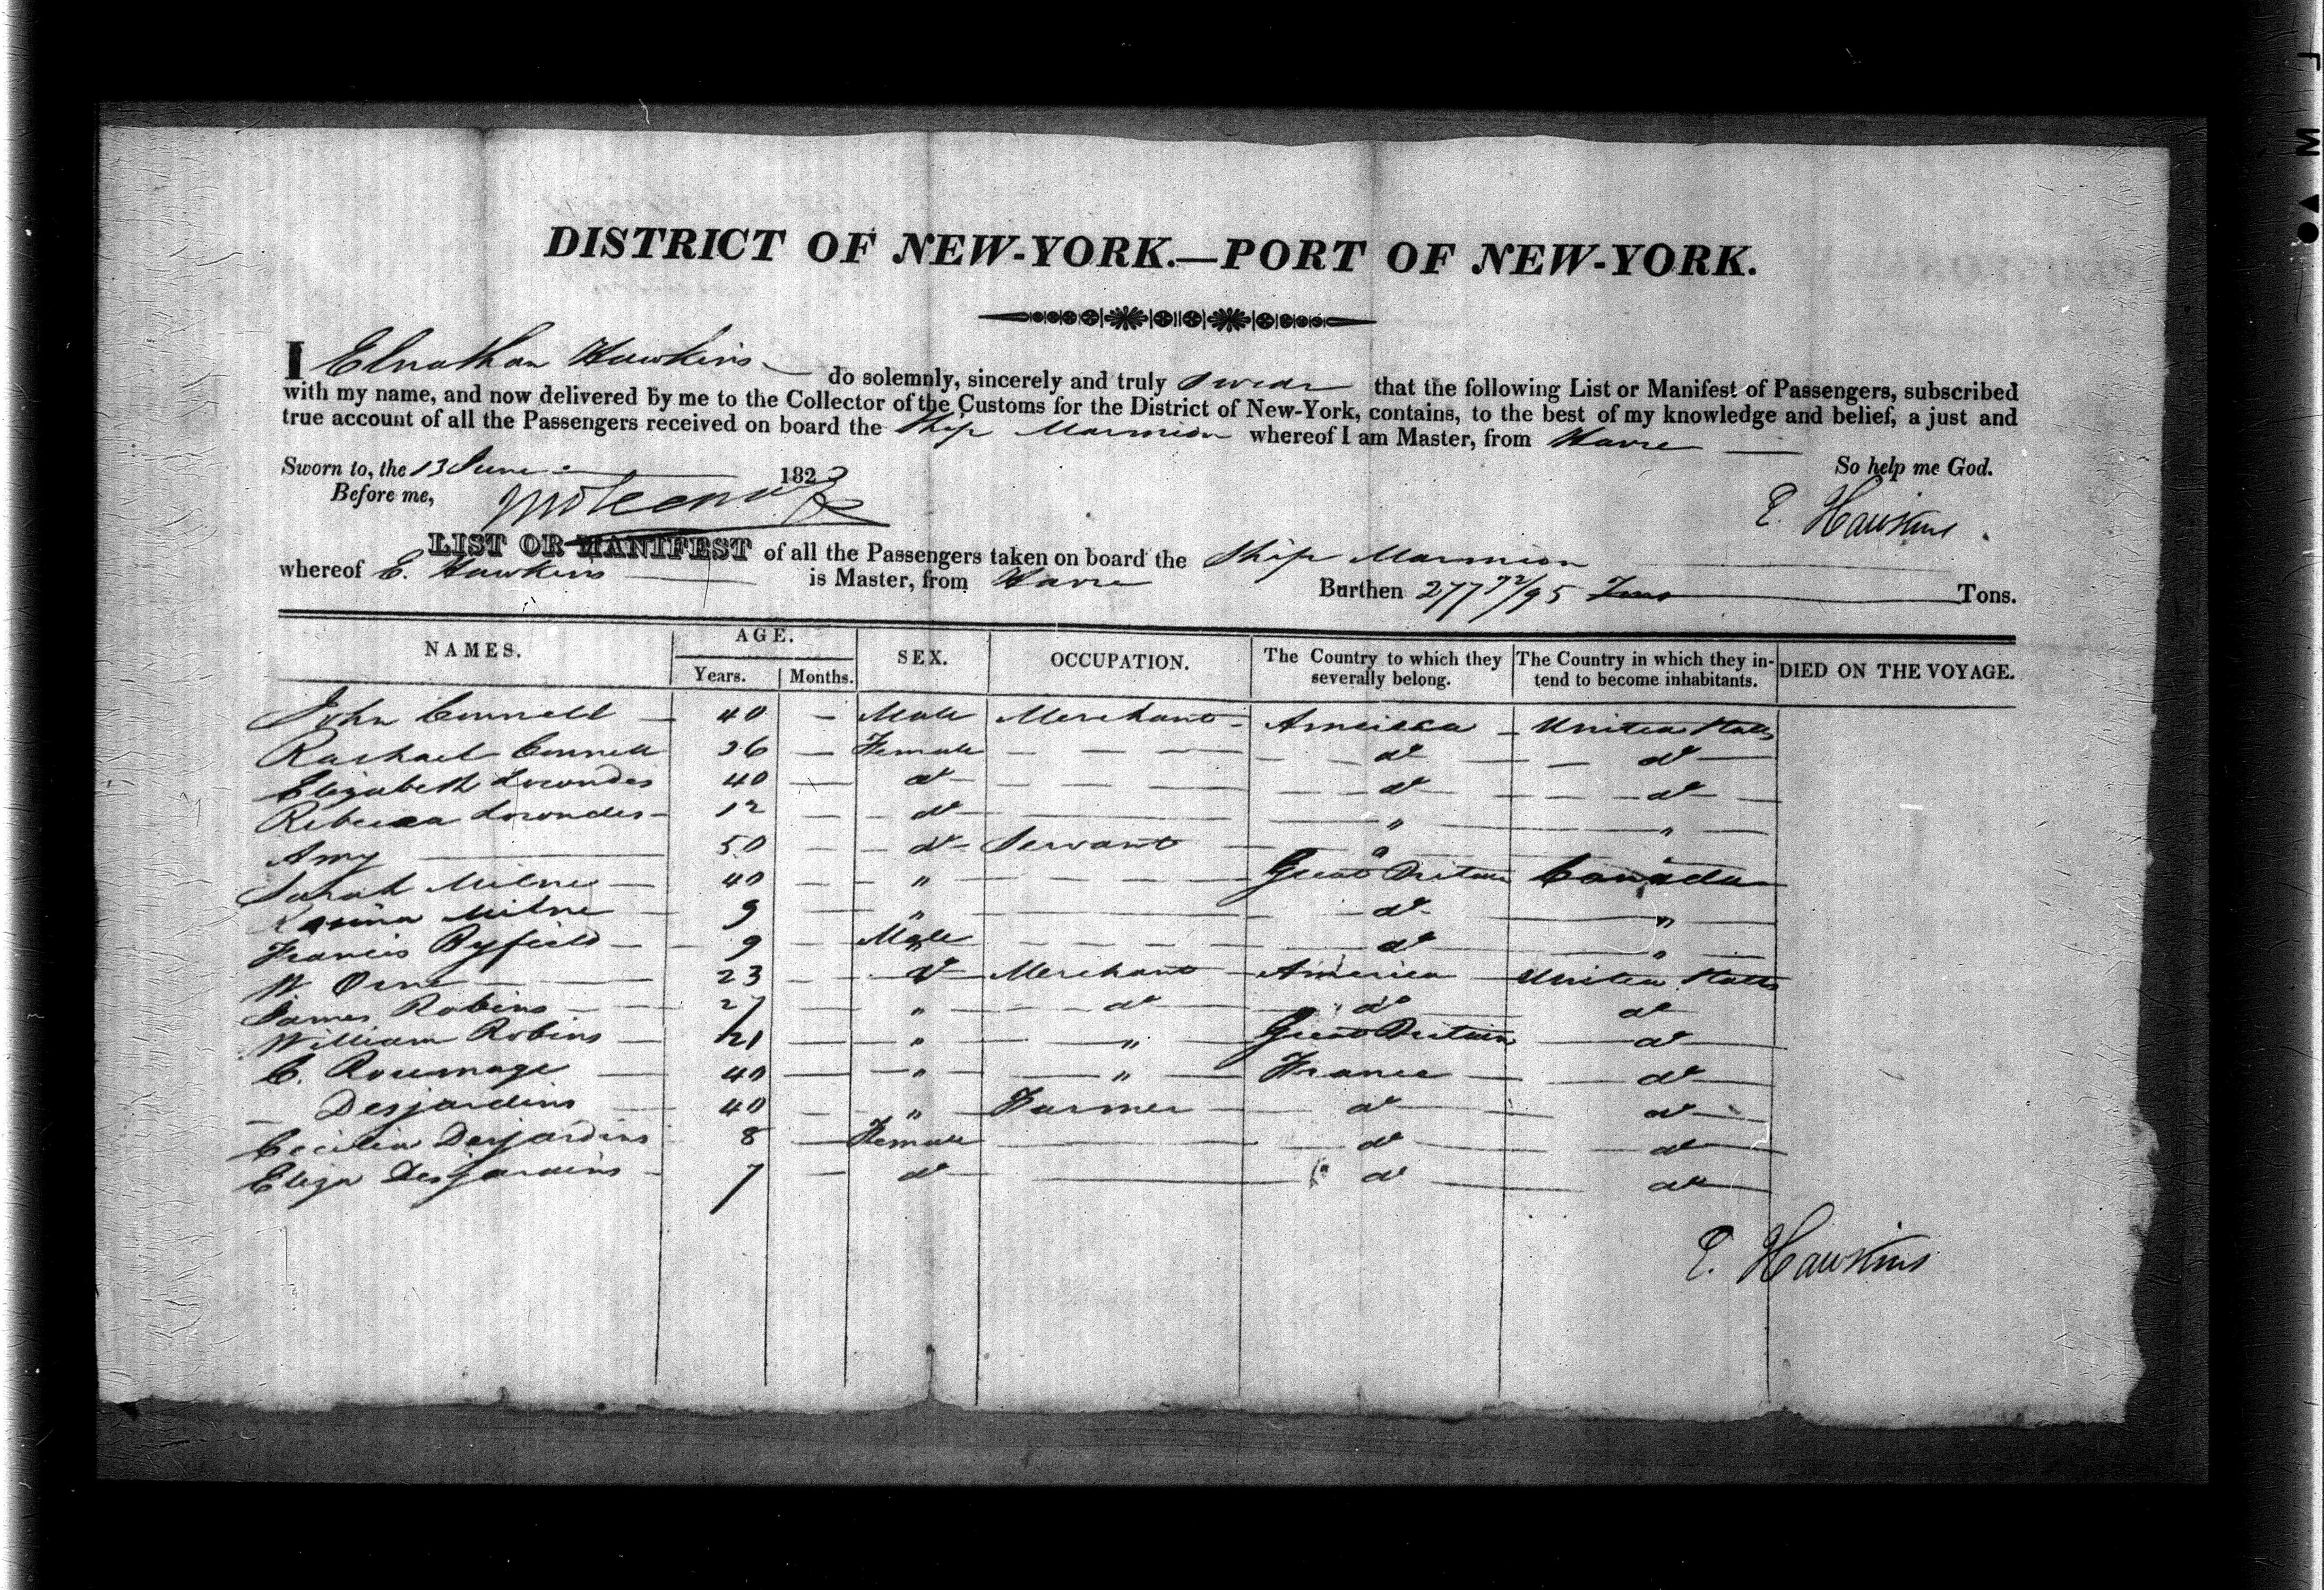 DISTRICT OF NEW-YORK.—PORT OF NEW-YORK.
I Elnathan Hawkins do solemnly, sincerely and truly swear that the following List or Manifest of Passengers, subscribed
with my name, and now delivered by me to the Collector of the Customs for the District of New-York, contains, to the best of my knowledge and belief, a just and
true account of all the Passengers received on board the Ship Marmion whereof I am Master, from Havre
Sworn to, the 13 June 1823 So help me God.
Before me,
E. Hawkins
LIST OR MANIFEST of all the Passengers taken on board the Ship Marmion
whereof E. Hawkins is Master, from Havre Burthen 277 72/95 Tons Tons.
NAMES. AGE. Years. Months. SEX. OCCUPATION. The Country to which they severally belong. The Country in which they intend to become inhabitants. DIED ON THE VOYAGE.
John Connell 40 — Male Merchant America United States
Rachael Connell 26 — Female — — — do do
Elizabeth Lowndes 40 — do — — — do do
Rebecca Lowndes 12 — do — — — " "
Amy 50 — do Servant " "
Sarah Milne 40 — " — — — Great Britain Canada
Milne 9 — " — — — do "
Francis Byfield 9 — Male — — — do "
W Orne 23 — do Merchant America United States
James Robins 27 — " do do do
William Robins 21 — " " Great Britain do
C. Roumage 40 — " " France do
— Desjardins 40 — " Farmer do do
Cecilia Desjardins 8 — Female — do do
Eliza Desjardins 7 — do — do do
E. Hawkins